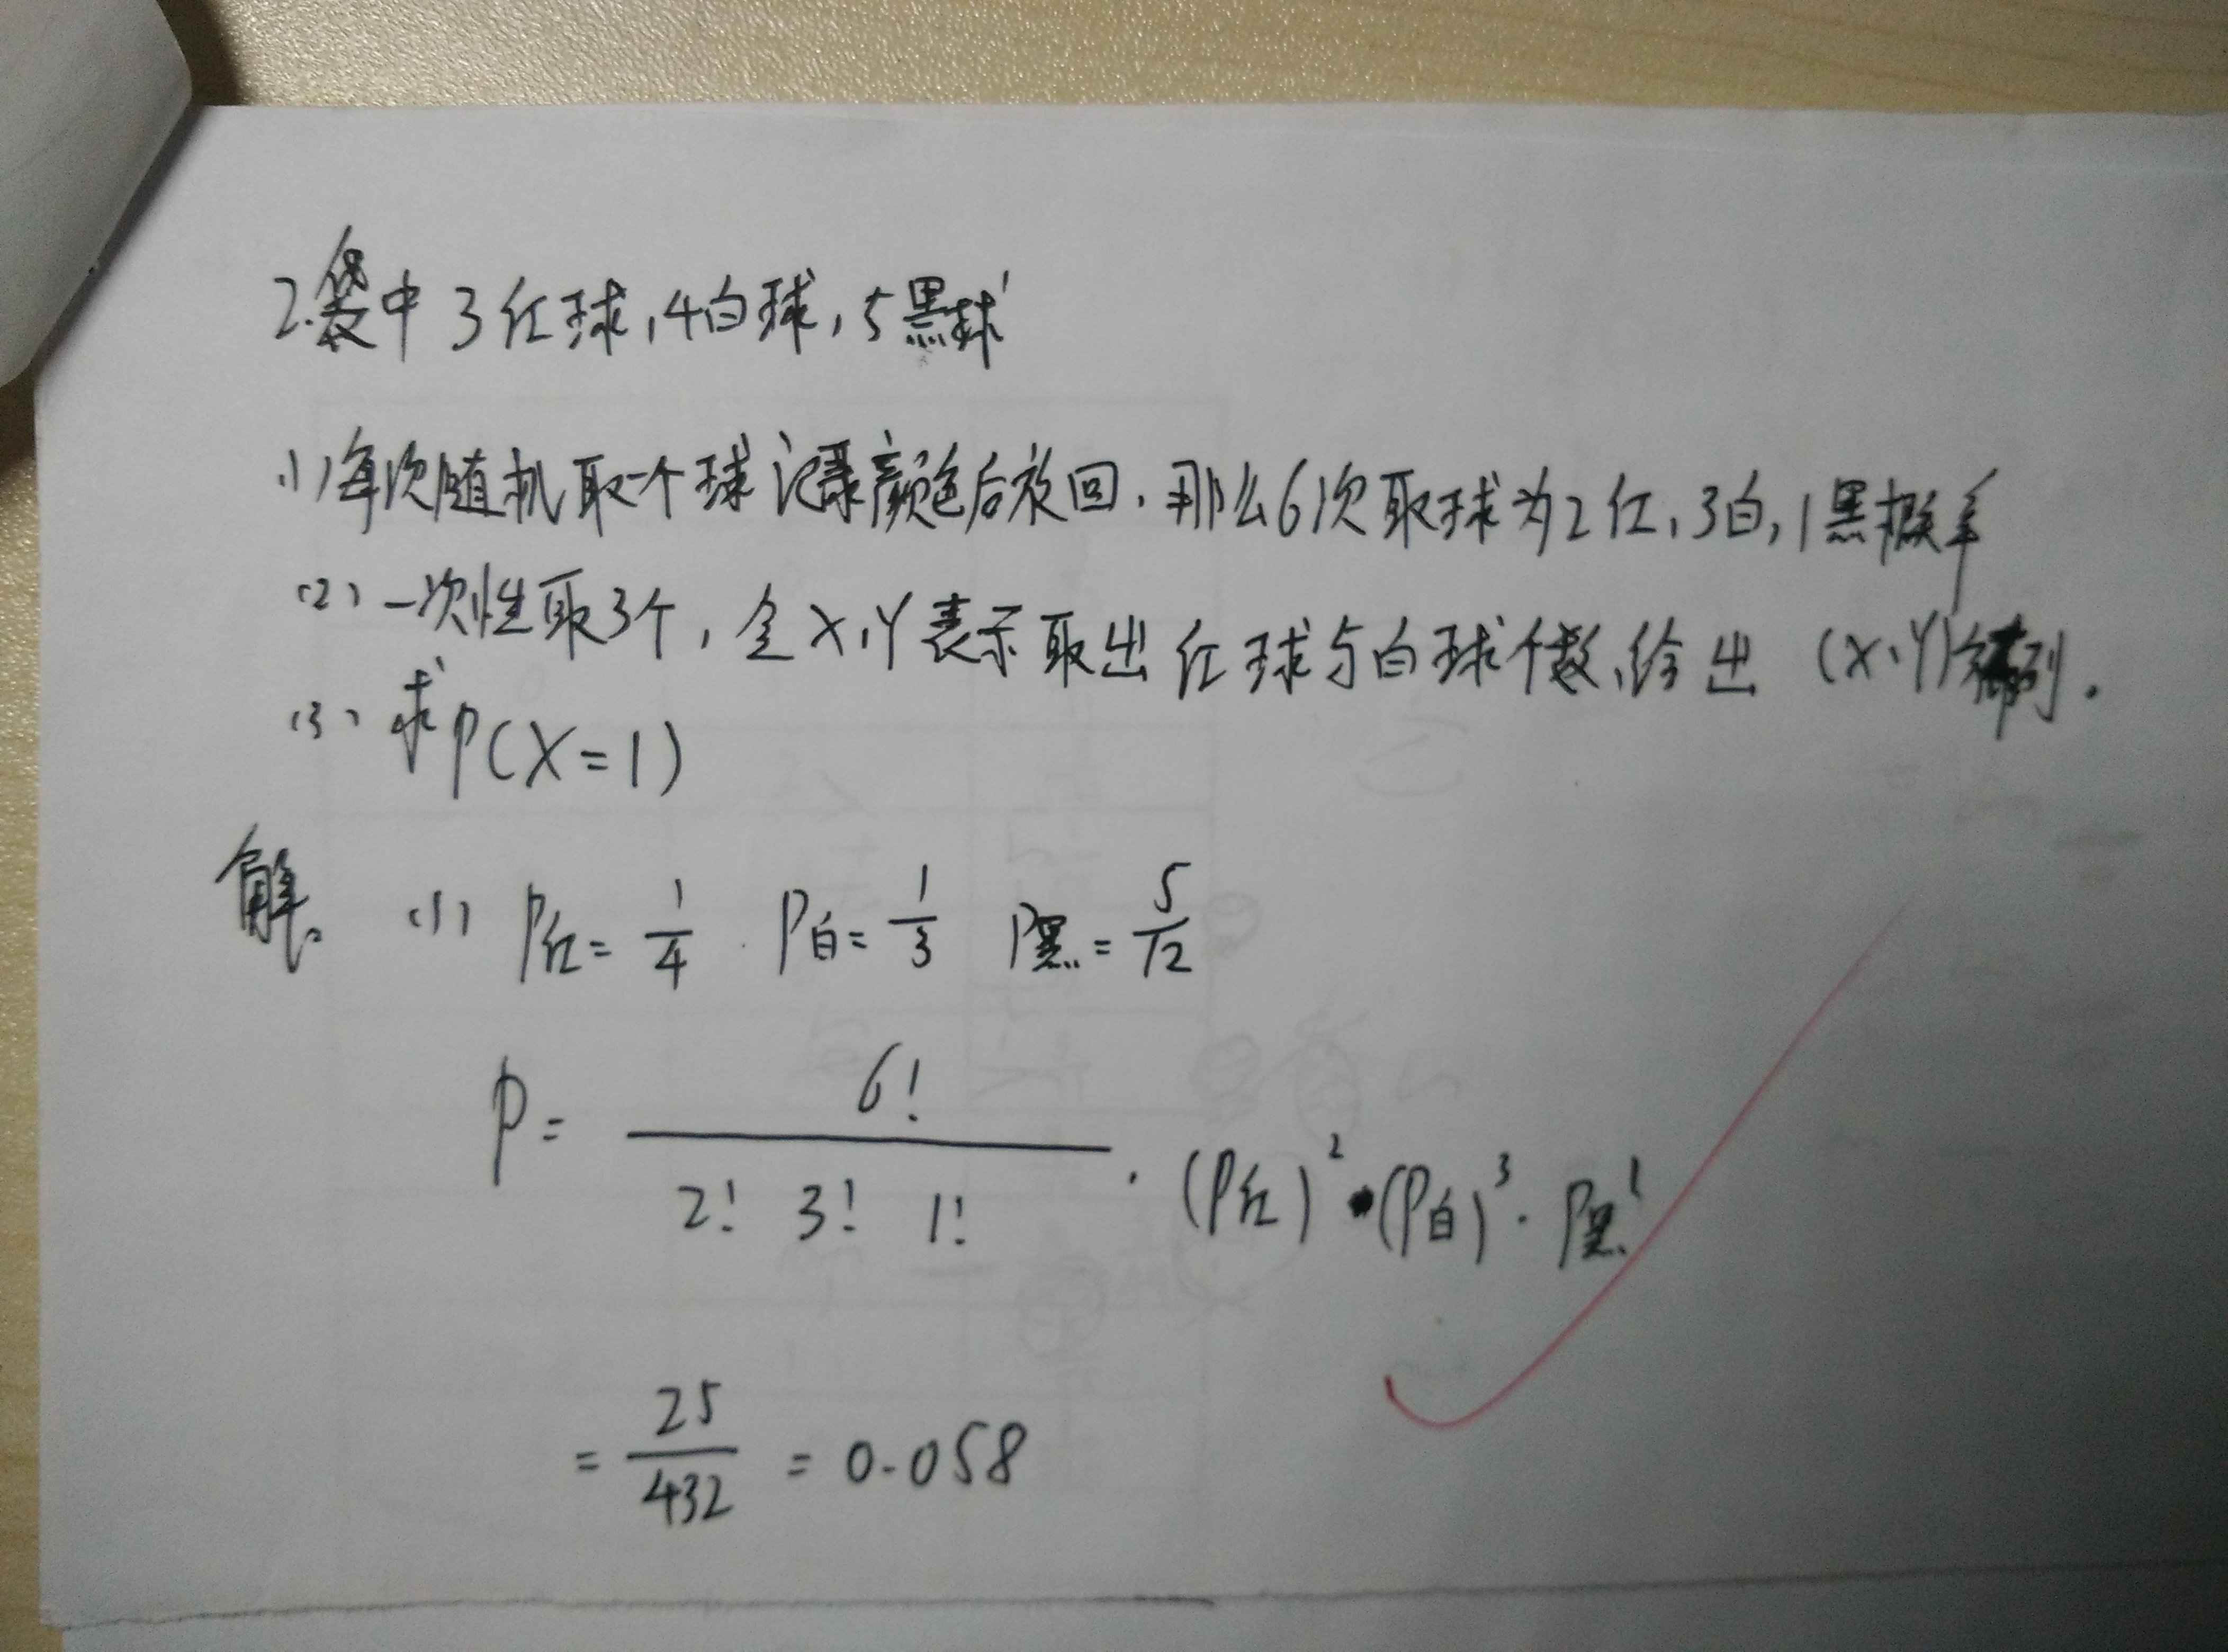 2.袋中3红球,4白球,5黑球
(1)每次随机取一个球记录颜色后放回,那么6次取球为2红,3白,1黑概率
(2)一次性取3个,令X,Y表示取出红球与白球个数,给出(X,Y)分布列.
(3)求P(X=1)
解. (1) P红=1/4 P白=1/3 P黑=5/12
P= 6!/(2! 3! 1!) · (P红)²·(P白)³·P黑¹
= 25/432 = 0.058